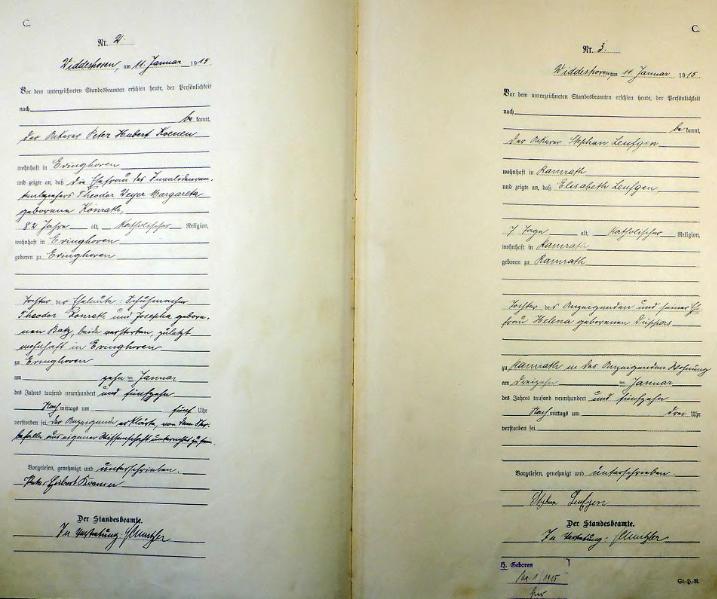 C.
Nr. 2
Widdeshoven, am 11. Januar 1915.
Vor dem unterzeichneten Standesbeamten erschien heute, der Persönlichkeit
nach
be kannt,
der Ackerer Peter Hubert Koenen
wohnhaft in Evinghoven
und zeigte an, daß die Ehefrau des Invaliden
Theodor Margareta
geborene Konrath,
82 Jahre alt, Katholischer Religion,
wohnhaft in Evinghoven
geboren zu Evinghoven
Tochter der Eheleute: Schuhmacher
Theodor Konrath und Josepha gebore-
nen Batz, beide verstorben, zuletzt
wohnhaft in Evinghoven
zu Evinghoven
am zehn Januar
des Jahres tausend neunhundert und fünfzehn
Nach mittags um fünf Uhr
verstorben sei. Der Anzeigende erklärte, von dem Ster-
befalle aus eigener Wissenschaft unterrichtet zu sein.
Vorgelesen, genehmigt und unterschrieben.
Peter Hubert Koenen
Der Standesbeamte.
In Vertretung:
C.
Nr. 3.
Widdeshoven, am 11 Januar 1915.
Vor dem unterzeichneten Standesbeamten erschien heute, der Persönlichkeit
nach
be kannt,
der Ackerer Stephan Leufgen
wohnhaft in Ramrath
und zeigte an, daß Elisabeth Leufgen,
7 Tage alt, Katholischer Religion,
wohnhaft in Ramrath
geboren zu Ramrath
Tochter des Anzeigenden und seiner Ehe
frau Helena geborenen
zu Ramrath in des Anzeigenden Wohnung
am Januar
des Jahres tausend neunhundert und fünfzehn
Nach mittags um drei Uhr
verstorben sei
Vorgelesen, genehmigt und unterschrieben
Stephan Leufgen
Der Standesbeamte.
In Vertretung:
H. Geboren
Nr 1/1915